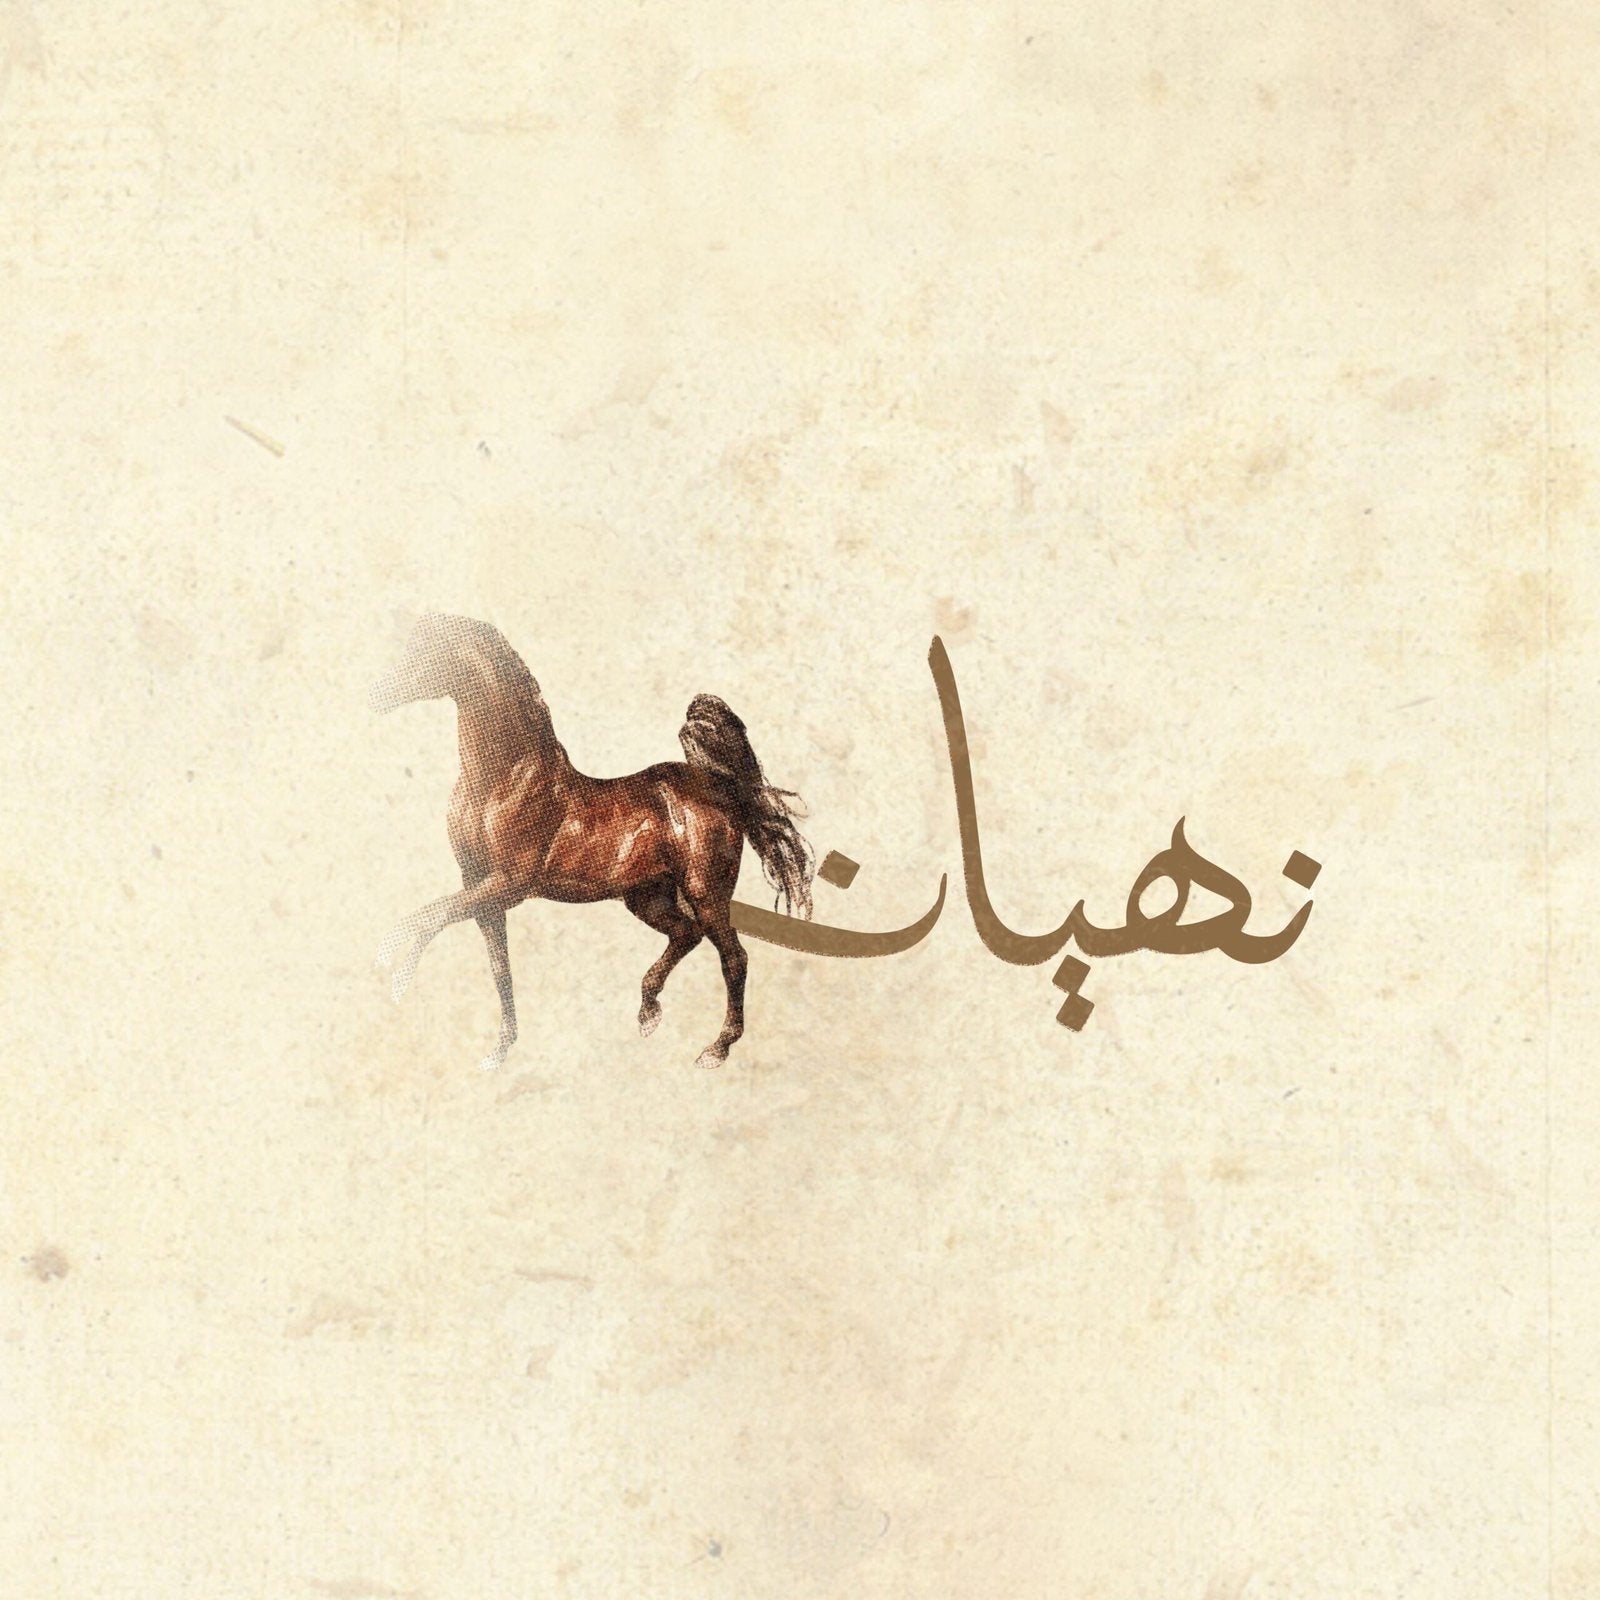 نهيان